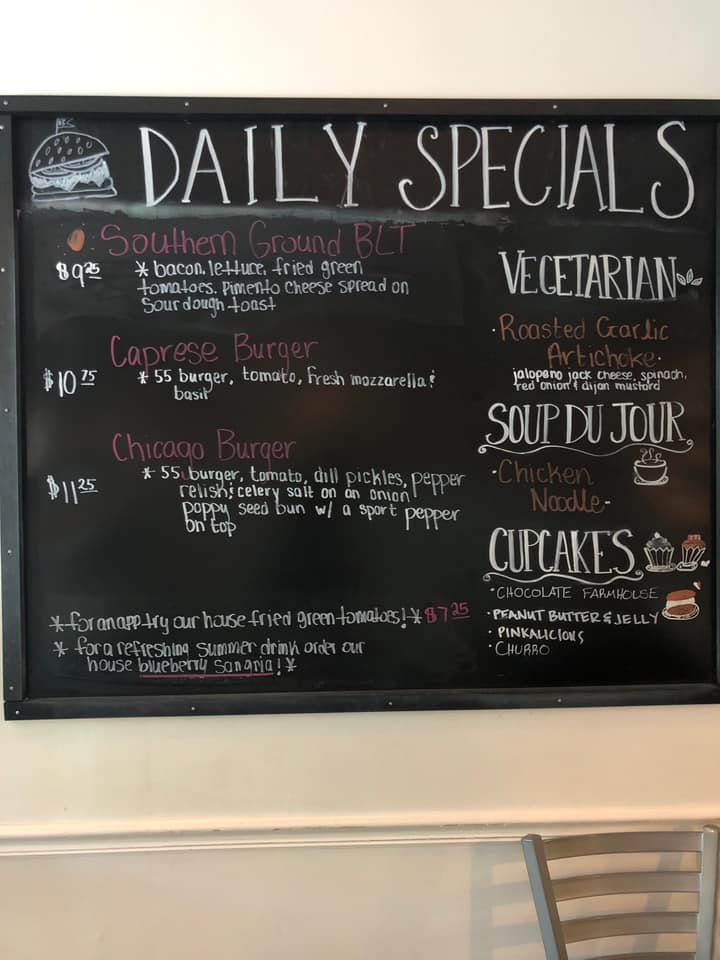 DAILY SPECIALS
Southern Ground BLT
$9.25 * bacon, lettuce, fried green
tomatoes, pimento cheese spread on
sourdough toast
Caprese Burger
$10.75 * 55 burger, tomato, fresh mozzarella &
basil
Chicago Burger
$11.25 * 55 burger, tomato, dill pickles, pepper
relish & celery salt on an onion
poppy seed bun w/ a sport pepper
on top
* for an app try our house fried green tomatoes! * $7.25
* for a refreshing summer drink order our
house blueberry sangria! *
VEGETARIAN
· Roasted Garlic
Artichoke ·
jalapeno jack cheese, spinach,
red onion & dijon mustard
SOUP DU JOUR
· Chicken
Noodle -
CUPCAKES
· CHOCOLATE FARMHOUSE
· PEANUT BUTTER & JELLY
· PINKALICIOUS
· CHURRO